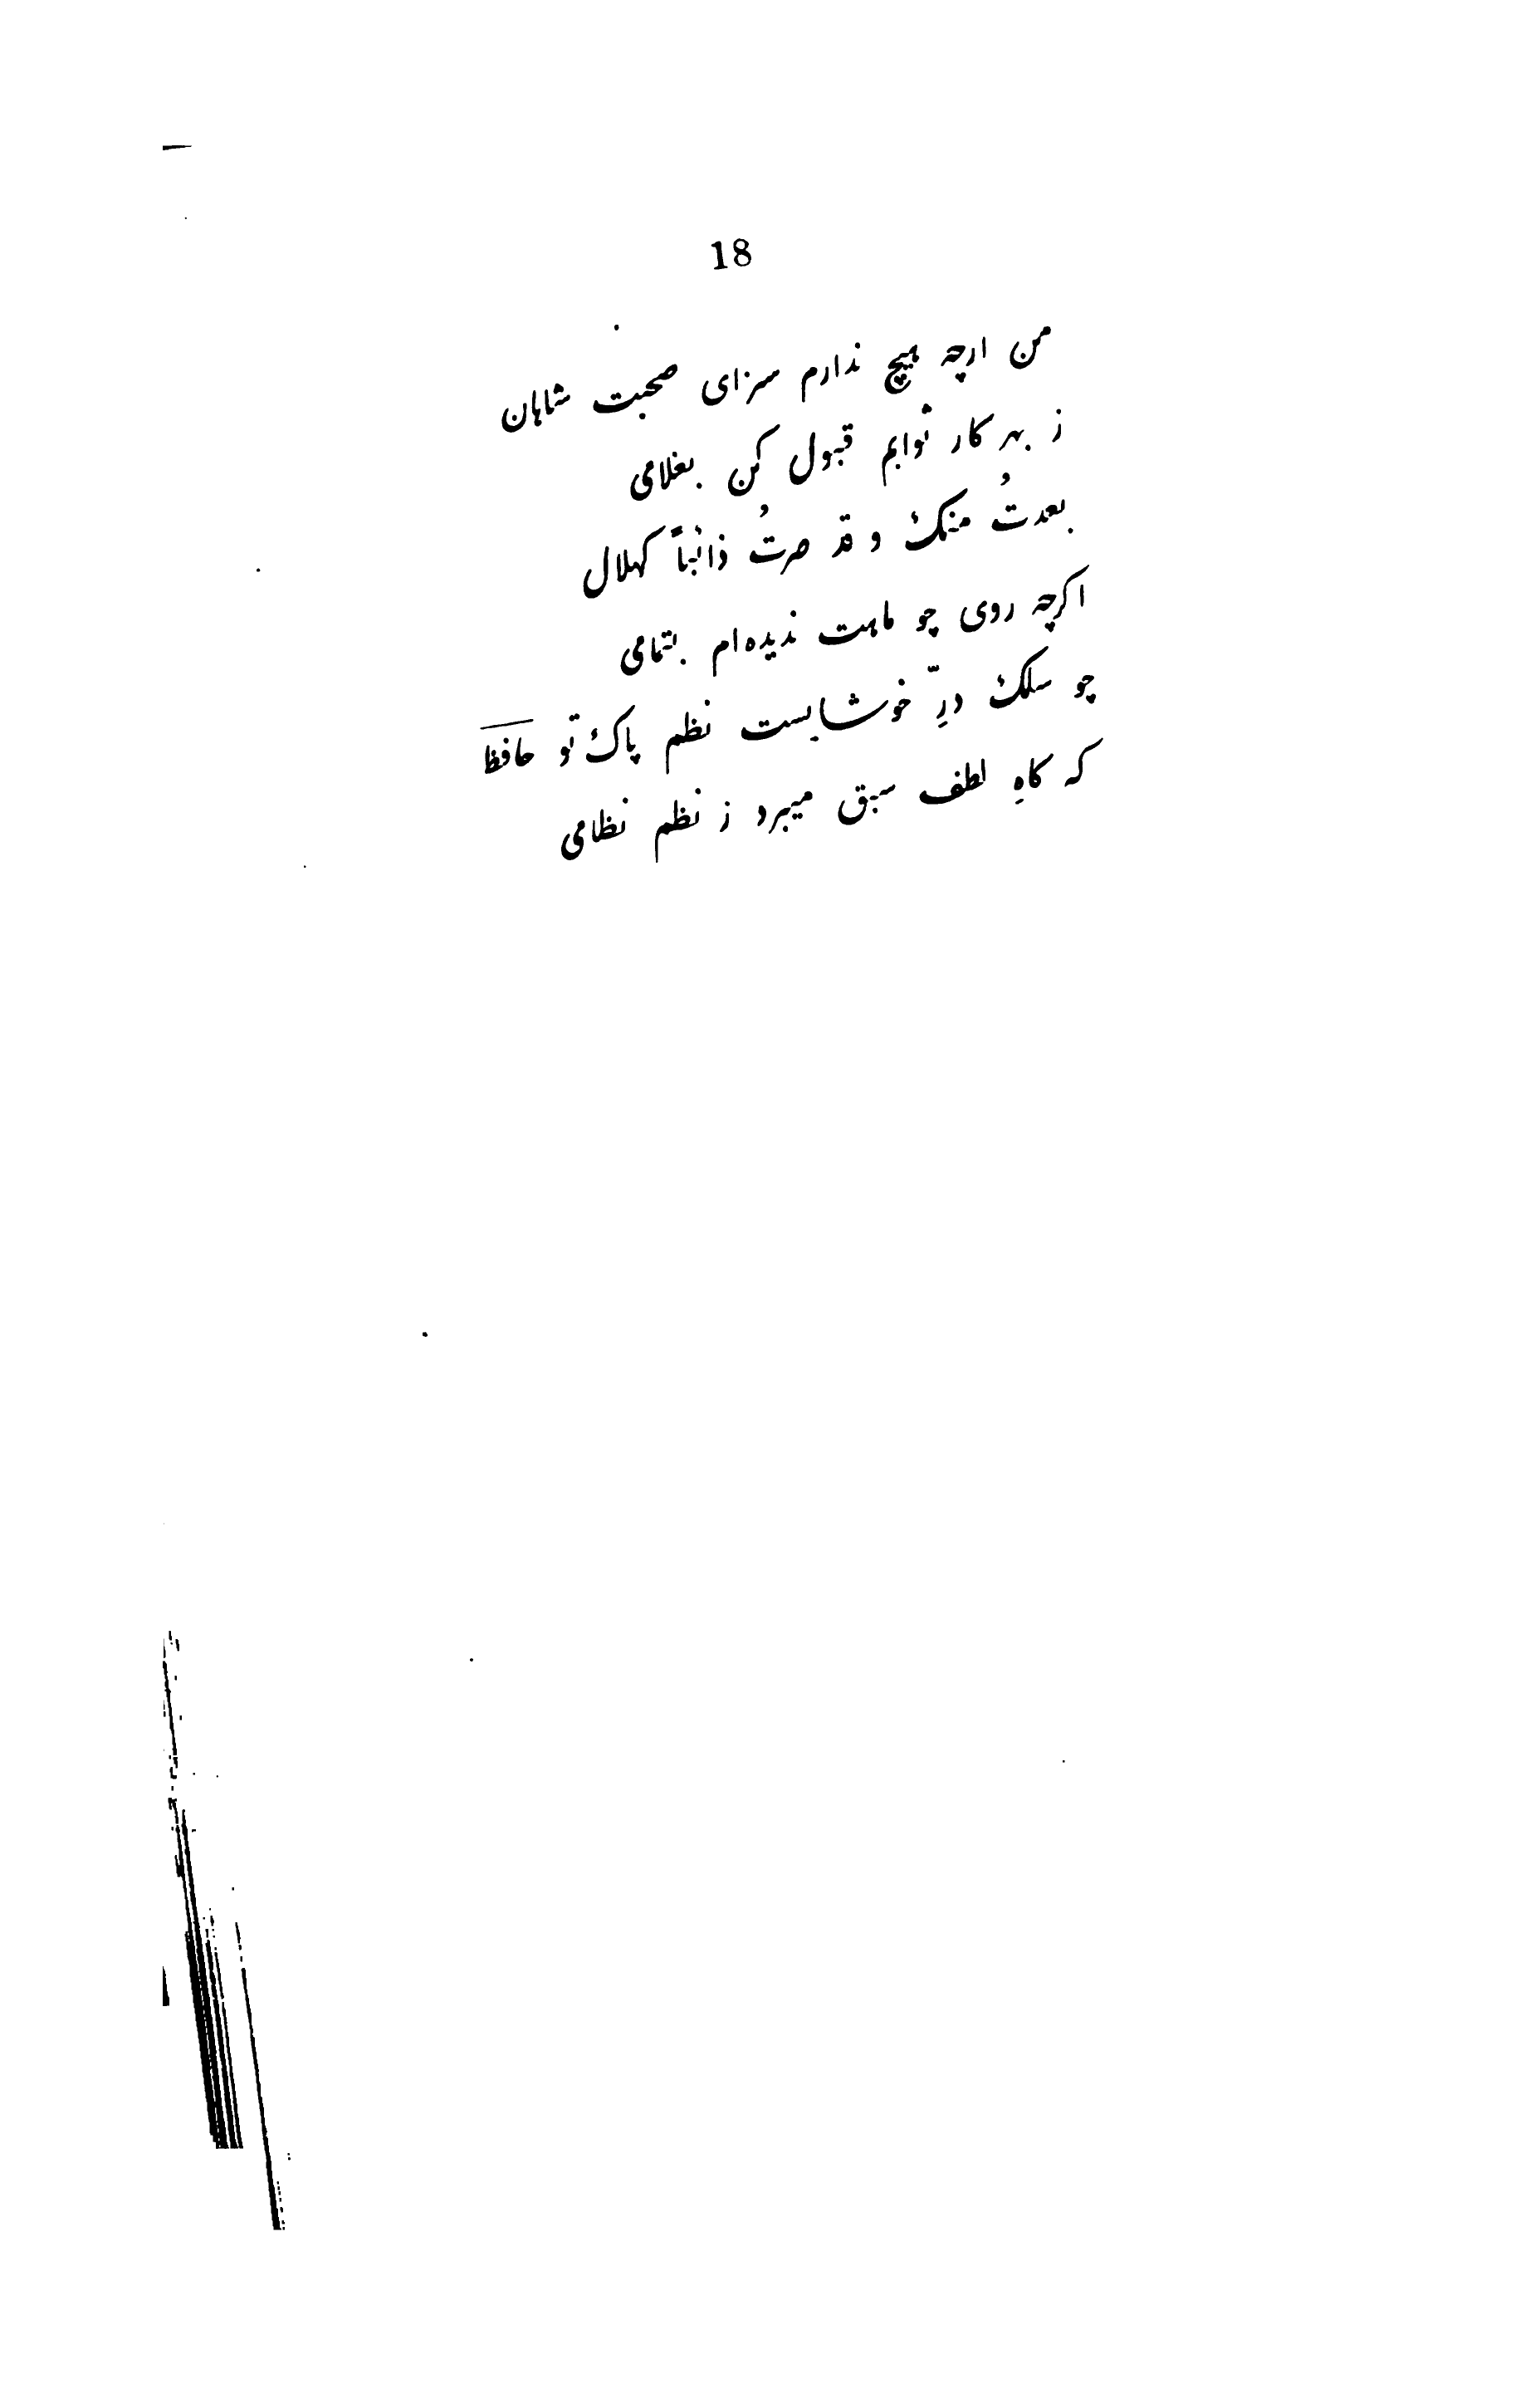 18
من ارچه هیچ ندارم سزای صحبت شاهان
ز بهر کار ثوابم قبول کن بغلامی
بعدتُ منک و قد صرتُ ذائباً کهلال
اکرچه روی چو ماهت ندیده‌ام بتمامی
چو سلک درِّ خوشابست نظم پاک تو حافظ
که کاهِ لطف سبق میبرد ز نظم نظامی